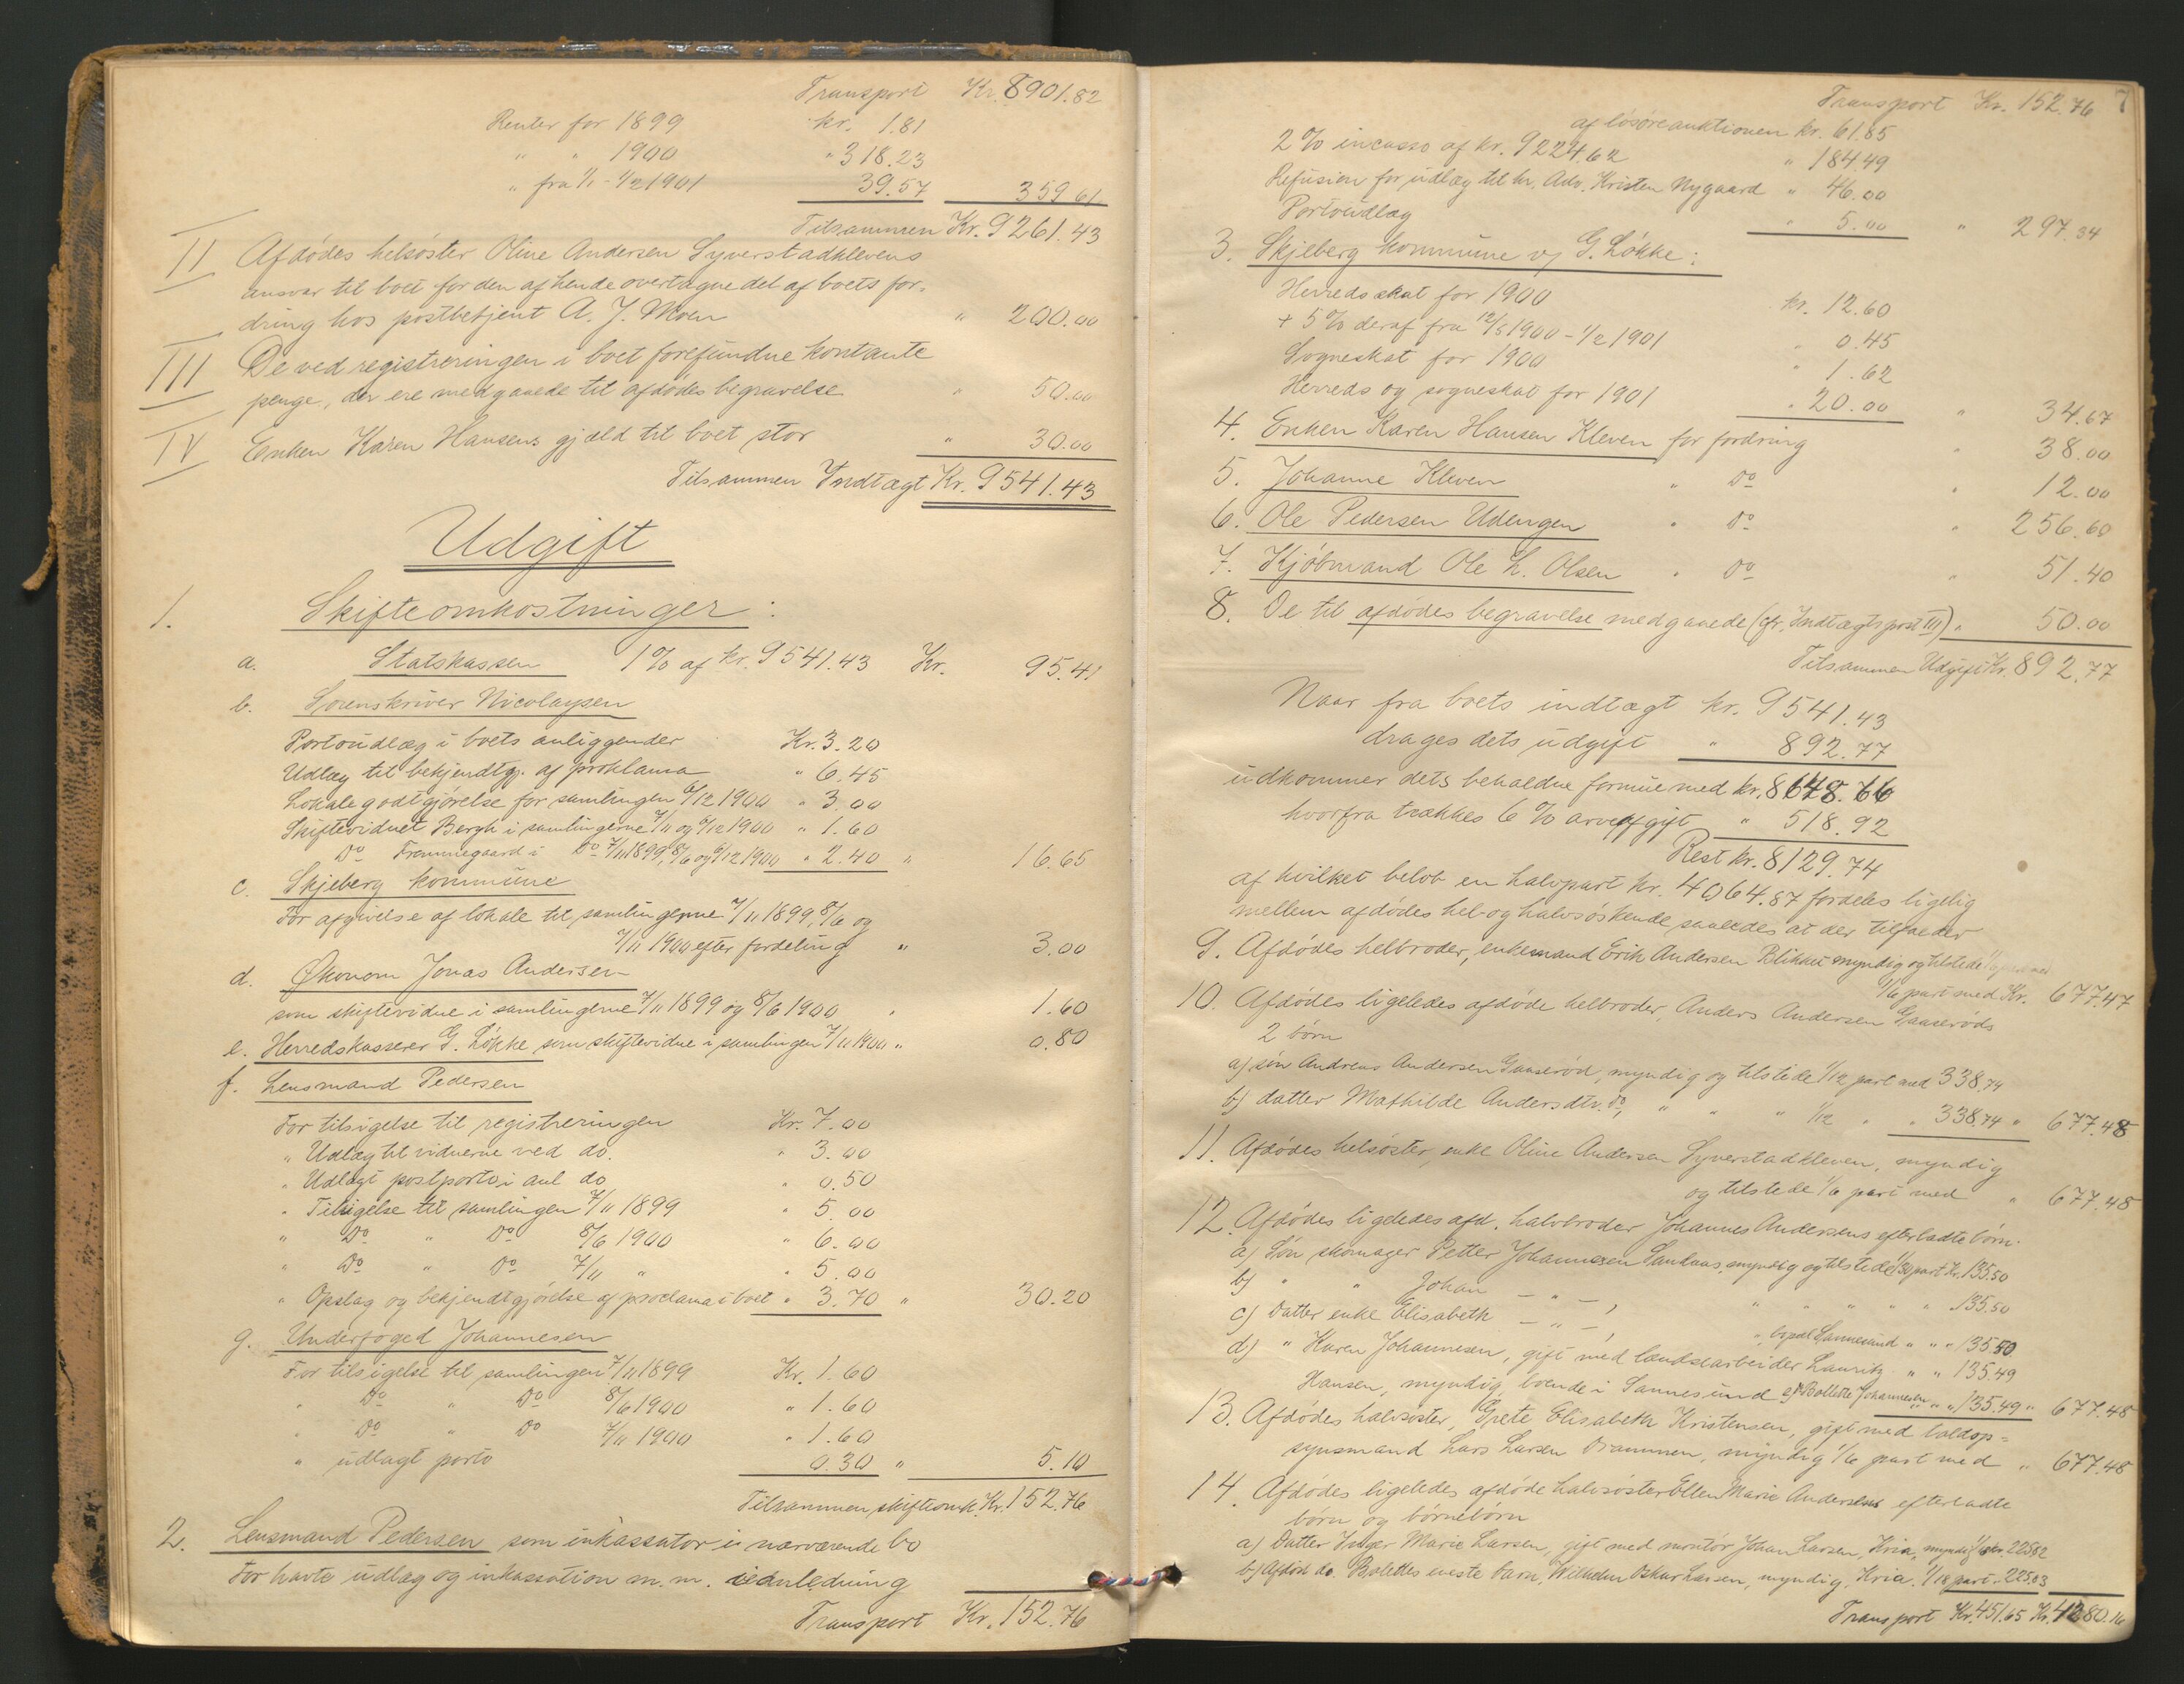 Transport Kr. 8901.82
Renter for 1899 kr. 1.81
" " 1900 " 318.23
" fra 1/1 - 1/2 1901 39.57 359 61
Tilsammen Kr. 9261.43
II Afdødes helsøster Oline Andersen Syverstadklevens
ansvar til boet for den af hende overtagne del af boets for-
dring hos postbetjent A. J. Moen " 200.00
III De ved registreringen i boet forefundne kontante
penge, der ere medgaaede til afdødes begravelse " 50.00
IV Enken Karen Hansens gjæld til boet stor " 30.00
Tilsammen Indtægt Kr. 9541.43
Udgift
1. Skifteomkostninger:
a. Statskassen 1% af kr. 9541.43 Kr. 95.41
b. Sorenskriver Nicolaysen
Portoudlæg i boets anliggender Kr. 3.20
Udlæg til bekjendtgj. af proklama " 6.45
Lokalegodtgjørelse for samlingen 6/12 1900 " 3.00
Skiftevidnet Bergh i samlingerne 7/11 og 6/12 1900 " 1.60
Do Frammegaard i Do 7/11 1899, 8/6 og 6/12 1900 " 2.40 " 16.65
c. Skjeberg kommune
For afgivelse af lokale til samlingerne 7/11 1899, 8/6 og
7/11 1900 efter fordeling " 3.00
d. Økonom Jonas Andersen
som skiftevidne i samlingerne 7/11 1899 og 8/6 1900 " 1.60
e. Herredskasserer G. Løkke som skiftevidne i samlingen 7/11 1900 " 0.80
f. Lensmand Pedersen
For tilsigelse til registreringen Kr. 7.00
" Udlæg til vidnerne ved do. " 3.00
" Udlagt postporto i anl do " 0.50
" Tilsigelse til samlingen 7/11 1899 " 5.00
" Do " Do 8/6 1900 " 6.00
" Do " Do 7/11 " " 5.00
" Opslag og bekjendtgjørelse af proclama i boet " 3.70 " 30.20
g. Underfoged Johannesen
For tilsigelse til samlingen 7/11 1899 Kr. 1.60
" Do " Do 8/6 1900 " 1.60
" Do " Do 7/11 1900 " 1.60
" udlagt porto 0.30 " 5.10
Tilsammen skifteomk. Kr. 152.76
2. Lensmand Pedersen som inkassator i nærværende bo
For havte udlæg og inkassation m. m. i anledning
Transport Kr. 152.76
7
Transport Kr. 152.76
af løsøreauktionen kr. 61.85
2% incasso af kr. 9224.62 " 184.49
Refusion for udlæg til hr. Adv. Kristen Nygaard " 46.00
Portoudlæg " 5.00 " 297.34
3. Skjeberg kommune v/ G. Løkke:
Herredsskat for 1900 kr. 12.60
+ 5% deraf fra 12/5 1900 - 1/2 1901 " 0.45
Sogneskat for 1900 " 1.62
Herreds og sogneskat for 1901 " 20.00 " 34.67
4. Enken Karen Hansen Kleven for fordring " 38.00
5. Johanne Kleven " Do " 12.00
6. Ole Pedersen Udengen " Do " 256.60
7. Kjøbmand Ole L. Olsen " Do " 51.40
8. De til afdødes begravelse medgaaede (cfr. Indtægtspost III) " 50.00
Tilsammen Udgift Kr. 892.77
Naar fra boets indtægt kr. 9541.43
drages dets udgift " 892.77
udkommer dets beholdne formue med kr. 8648.66
hvorfra trækkes 6% arveafgift " 518.92
Rest kr. 8129.74
af hvilket beløb en halvpart kr. 4064.87 fordeles ligelig
mellem afdødes hel- og halvsøskende saaledes at der tilfalder
9. Afdødes helbroder, enkemand Erik Andersen Blikket myndig og tilstede
1/6 part med Kr. 677.47
10. Afdødes ligeledes afdøde helbroder, Anders Andersen Gaaserøds
2 børn
a) søn Andreas Andersen Gaaserød, myndig og tilstede 1/12 part med 338.74
b) datter Mathilde Andersdtr. do, " " " 1/12 " " 338.74 " 677.48
11. Afdødes helsøster, enke Oline Andersen Syverstadkleven, myndig
og tilstede 1/6 part med " 677.48
12. Afdødes ligeledes afd. halvbroder Johannes Andersens efterladte børn.
a) Søn skomager Petter Johannesen Sandaas, myndig og tilstede 1/30 part Kr. 135.50
b) " " Johan - " - , " " " " " 135.50
c) Datter enke Elisabeth - " - , " bopæl Sannesund " " " 135.50
d) " Karen Johannesen, gift med landsearbeider Lauritz " " 135.49
Hansen, myndig, boende i Sannesund e) Do Bollette Johannesen " " " 135.49 " 677.48
13. Afdødes halvsøster, Grete Elisabeth Kristensen, gift med toldop=
synsmand Lars Larsen Drammen, myndig 1/6 part med " 677.48
14. Afdødes ligeledes afdøde halvsøster Ellen Marie Andersens efterladte
børn og børnebørn
a) Datter Inger Marie Larsen, gift med montør Johan Larsen, Kria, myndig 1/18 kr. 225.82
b) Afdød do. Bolettes eneste barn, Wilhelm Oskar Larsen, myndig, Kria. 1/18 part " 225.83
Transport Kr. 451.65 Kr. 4280.16